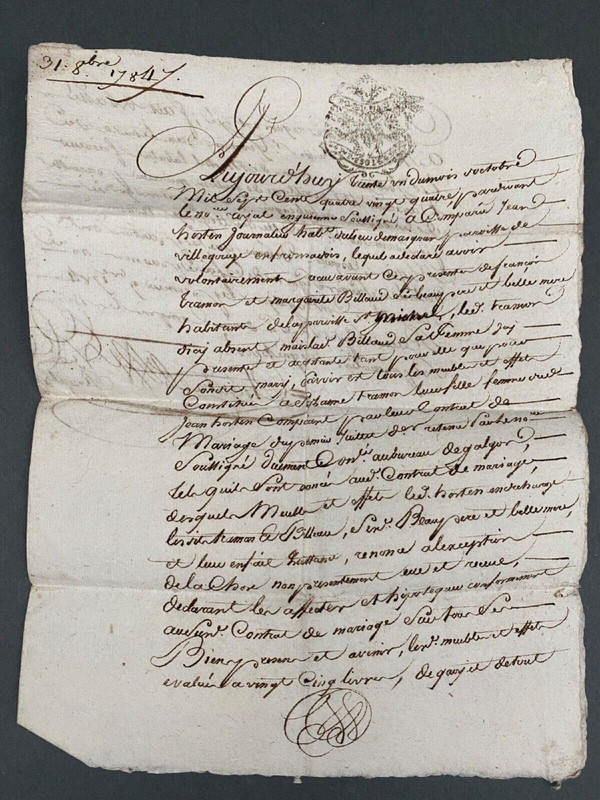 31. 8bre 1784.
Aujourd'huy trente un du mois d'octobre
Mil Sept Cent quatre vingt quatre pardevant
le no.re royal en guienne Soussigné a Comparu Jean
horten Journalier hab.t du lieu de
villegouge en fronsadois, lequel a declaré avoir
volontairement avant Ces presentes de françois
tramon et marguerite Billaud Ses beaupere et belle mere
habitants de la parroisse S.t Michel, led. tramon
icy absent mais lad. Billaud Sa femme icy
presente et acceptante tant pour elle que pour
Son dit mary, Sçavoir est tous les meubles et effets
Constitués a tramon leur fille femme dud.
Jean horten Comparant par leur Contrat de
Mariage du premier retenu par le no.re
Soussigné duement Con.lé au bureau de galgon,
tels quils Sont enoncés aud. Contrat de mariage,
desquels Meubles et effets led. horten en decharge
lesdits tramon et Billaud, Sesd. Beaupere et belle mere,
et leur en fait quittance, renonce a l'exception
de la Chose non presentement eue et recue,
declarant les affecter et hipotequer conformement
au Susd. Contrat de mariage Sur tous Ses
Biens presens et avenir, lesd. meubles et effets
evalués a vingt Cinq livres, de quoy et de tout